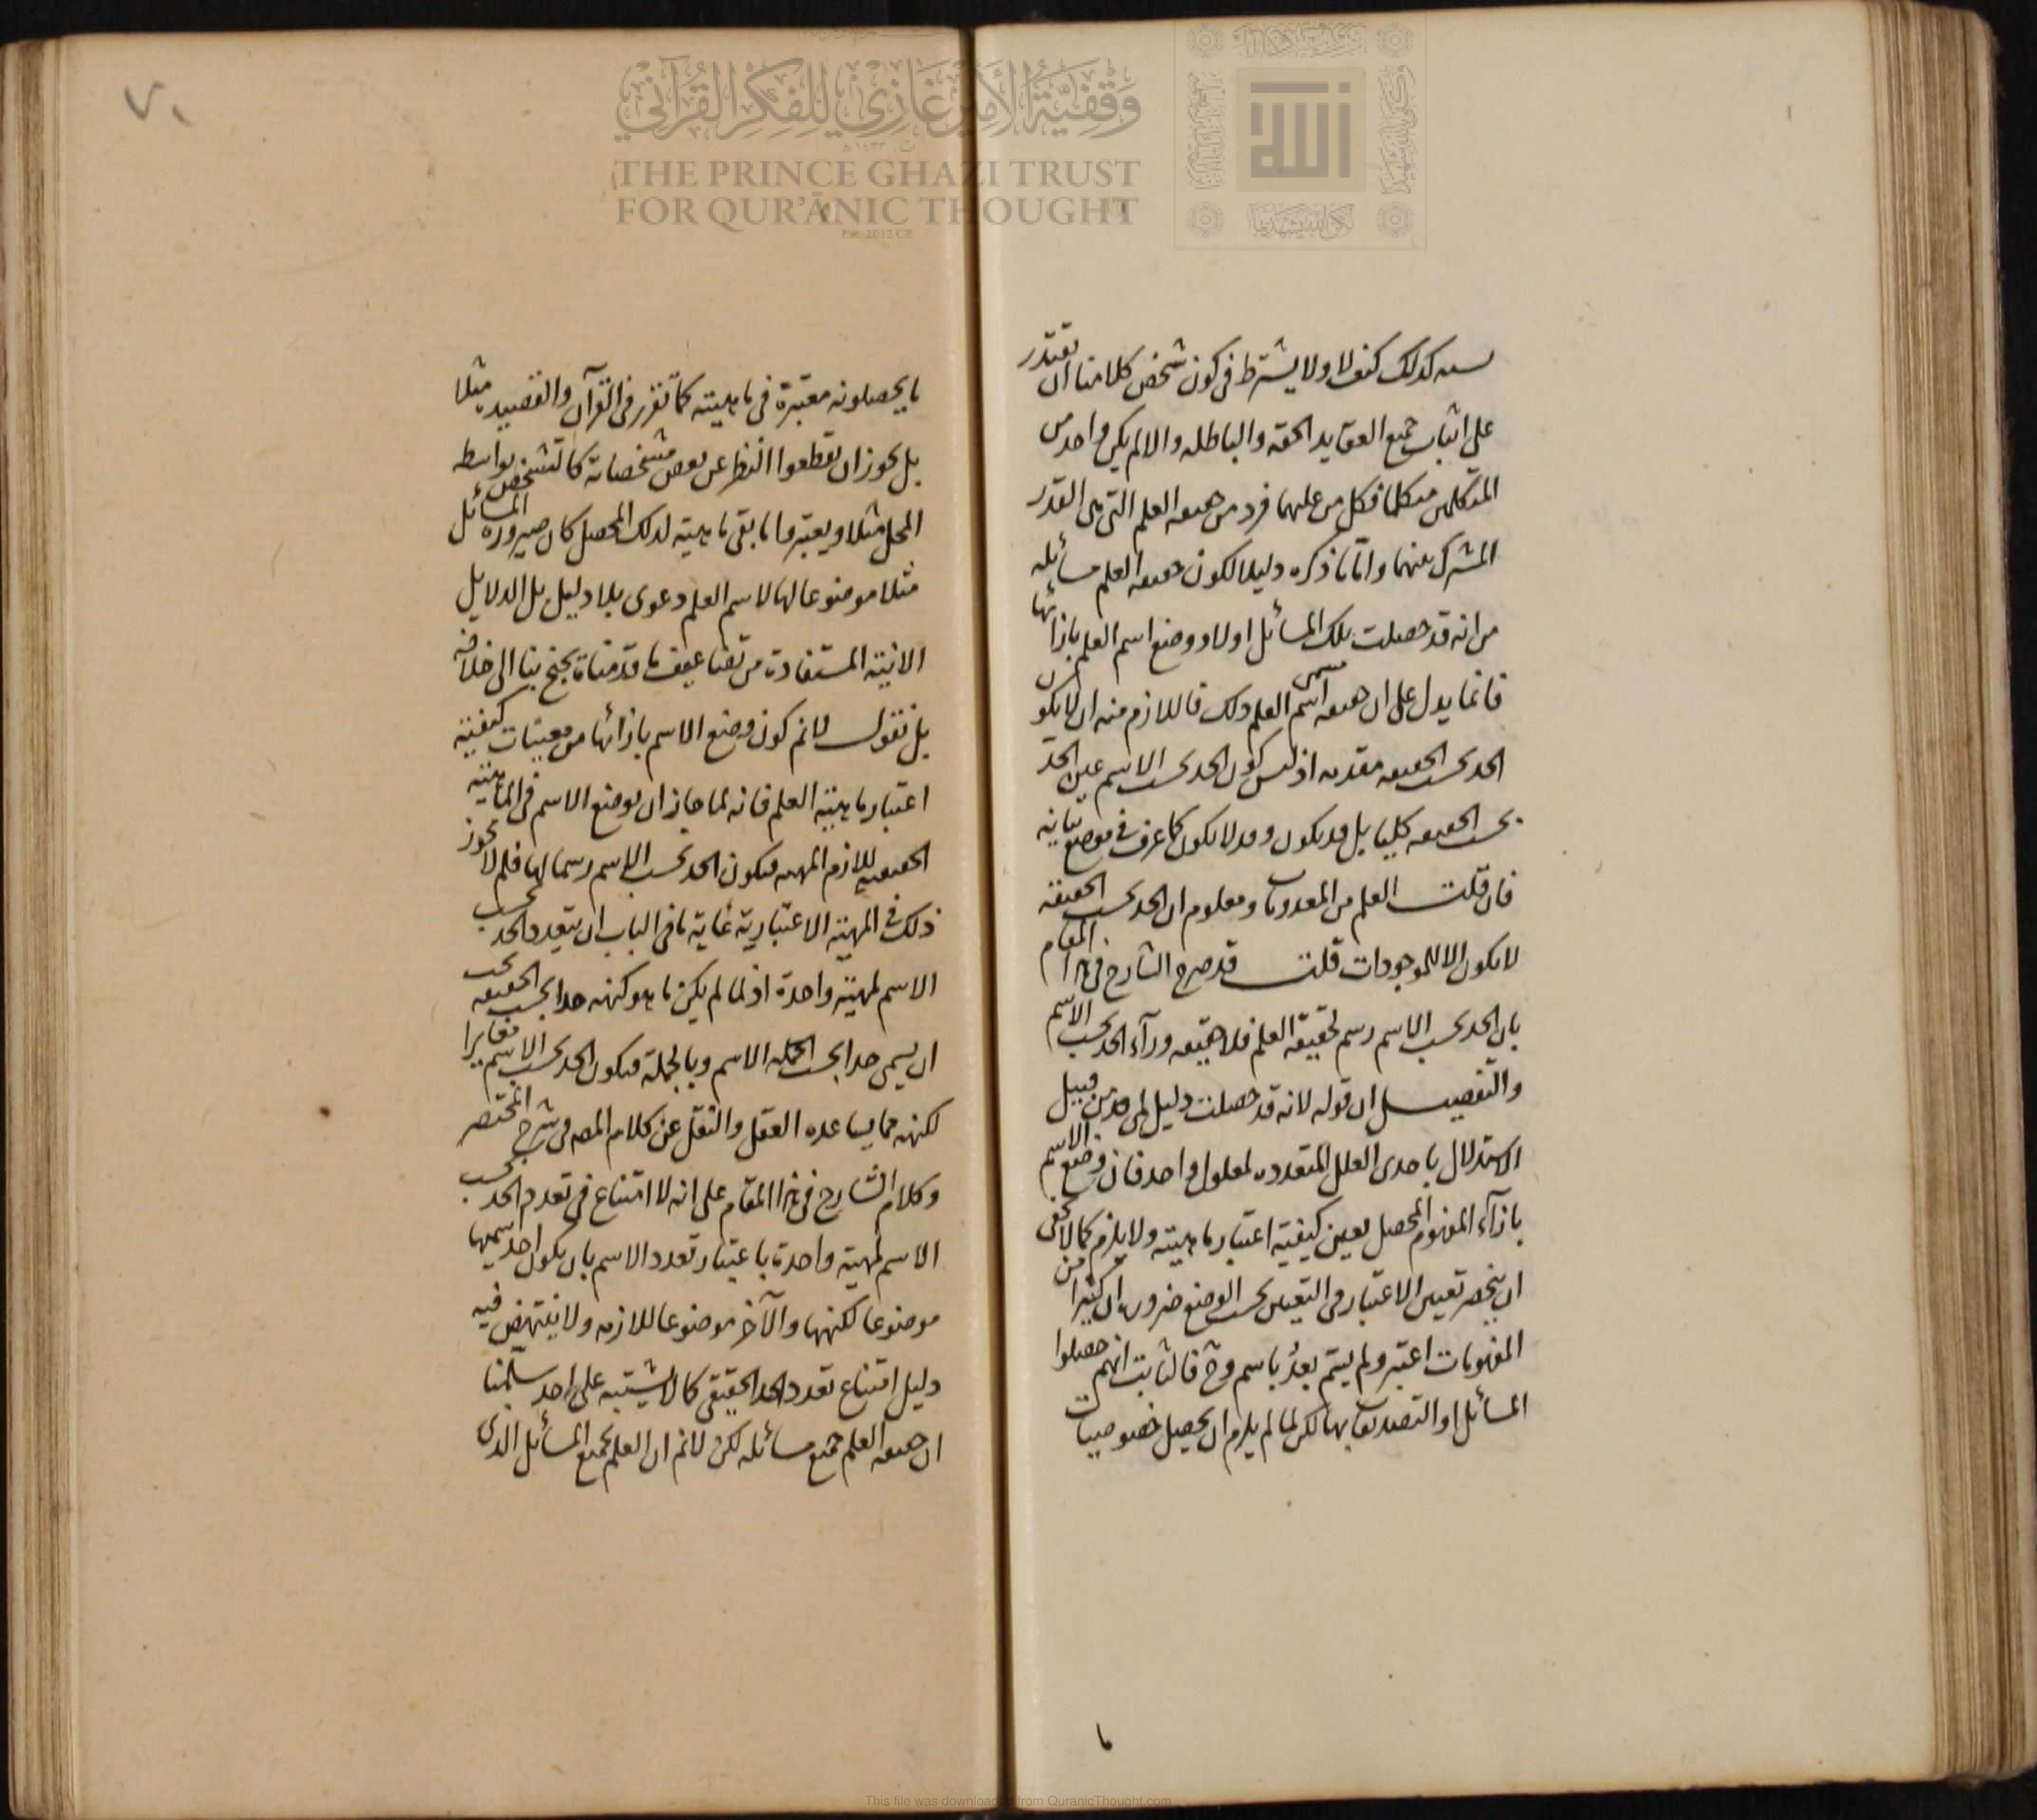 كدلك كيف لا ولا يشترط فى كون شخص كلامنا ان يقتدر
على اثبات جميع العقايد الحقه والباطله والا لم يكن واحد من
المتكلمين متكلما فكل من علميهما فرد من حقيقه العلم التى هى القدر
المشترك بينهما واما ما ذكره دليلا لكون حقيقه العلم مسائله
من انه قد حصلت تلك المسائل اولا ووضع اسم العلم بازائها
فانما يدل على ان حقيقه مسمى اسم العلم ذلك فاللازم منه ان لا يكون
الحد بحسب الحقيقه مقدمه اذ ليس كون الحد بحسب الاسم عين الحد
بحسب الحقيقه كليا بل قد يكون وقد لا يكون كما عرف فى موضع
فان قلت العلم من المعدومات ومعلوم ان الحد بحسب الحقيقة
لا يكون الا للموجودات قلت قد صرح الشارح فى هذا المقام
بان الحد بحسب الاسم رسم لحقيقة العلم فلا حقيقه ورآء الحد بحسب الاسم
والتفصيل ان قوله لانه قد حصلت دليل لمى من قبيل
الاستدلال باحدى العلل المتعدده لمعلول واحد فان وضع الاسم
بازآء المفهوم المحصل يعين كيفية اعتبار ماهيته ولا يلزم كما لا يخفى
ان ينحصر تعين الاعتبار فى التعين بحسب الوضع ضرورة ان كثيرا من
المفهومات اعتبر ولم يسم بعد باسم وح فالثابت انهم حصلوا
المسائل او التصديقات بها لكن لما لم يلزم ان يحصل خصوصيات
ما
٧٠
ما يحصلونه معتبرة فى ماهيته كما تقرر فى القرآن والقصيده مثلا
بل يجوز ان يقطعوا النظر عن بعض مشخصاته كالتشخص بواسطه
المحل مثلا ويعتبروا ما بقى ماهية لذلك المحصل كان صيرورة المسائل
مثلا موضوعا لها لاسم العلم دعوى بلا دليل بل الدلايل
الانية المستفادة من تضاعيف ما قدمناه تجنح بنا الى خلافه
بل نقول لا نم كون وضع الاسم بازائها من معينات كيفية
اعتبار ماهيته العلم فانه لما جاز ان يوضع الاسم فى الماهية
الحقيقيه للازم المهيه فيكون الحد بحسب الاسم رسما لها فلم لا يجوز
ذلك فى المهية الاعتبارية غاية ما فى الباب ان يتعدد الحد بحسب
الاسم لمهية واحدة اذ لما لم يكن ما هو كنهه حدا بحسب الحقيقه يجب
ان يسمى حدا بحسب الجمله الاسم وبالجملة فيكون الحد بحسب الاسم مغايرا
لكنهه مما يساعده العقل والنقل عن كلام المصه فى شرح المختصر
وكلام الشارح فى هذا المقام على انه لا امتناع فى تعدد الحد بحسب
الاسم لمهية واحدة باعتبار تعدد الاسم بان يكون احد اسميها
موضوعا لكنهها والآخر موضوعا للازمه ولا ينتهض فيه
دليل امتناع تعدد الحد الحقيقى كما لا يشتبه على احد سلمنا
ان حقيقه العلم جميع مسائله لكن لا نم ان العلم بجميع المسائل الذى
وقفية الأمير غازي للفكر القرآني
THE PRINCE GHAZI TRUST
FOR QUR'ĀNIC THOUGHT
This file was downloaded from QuranicThought.com